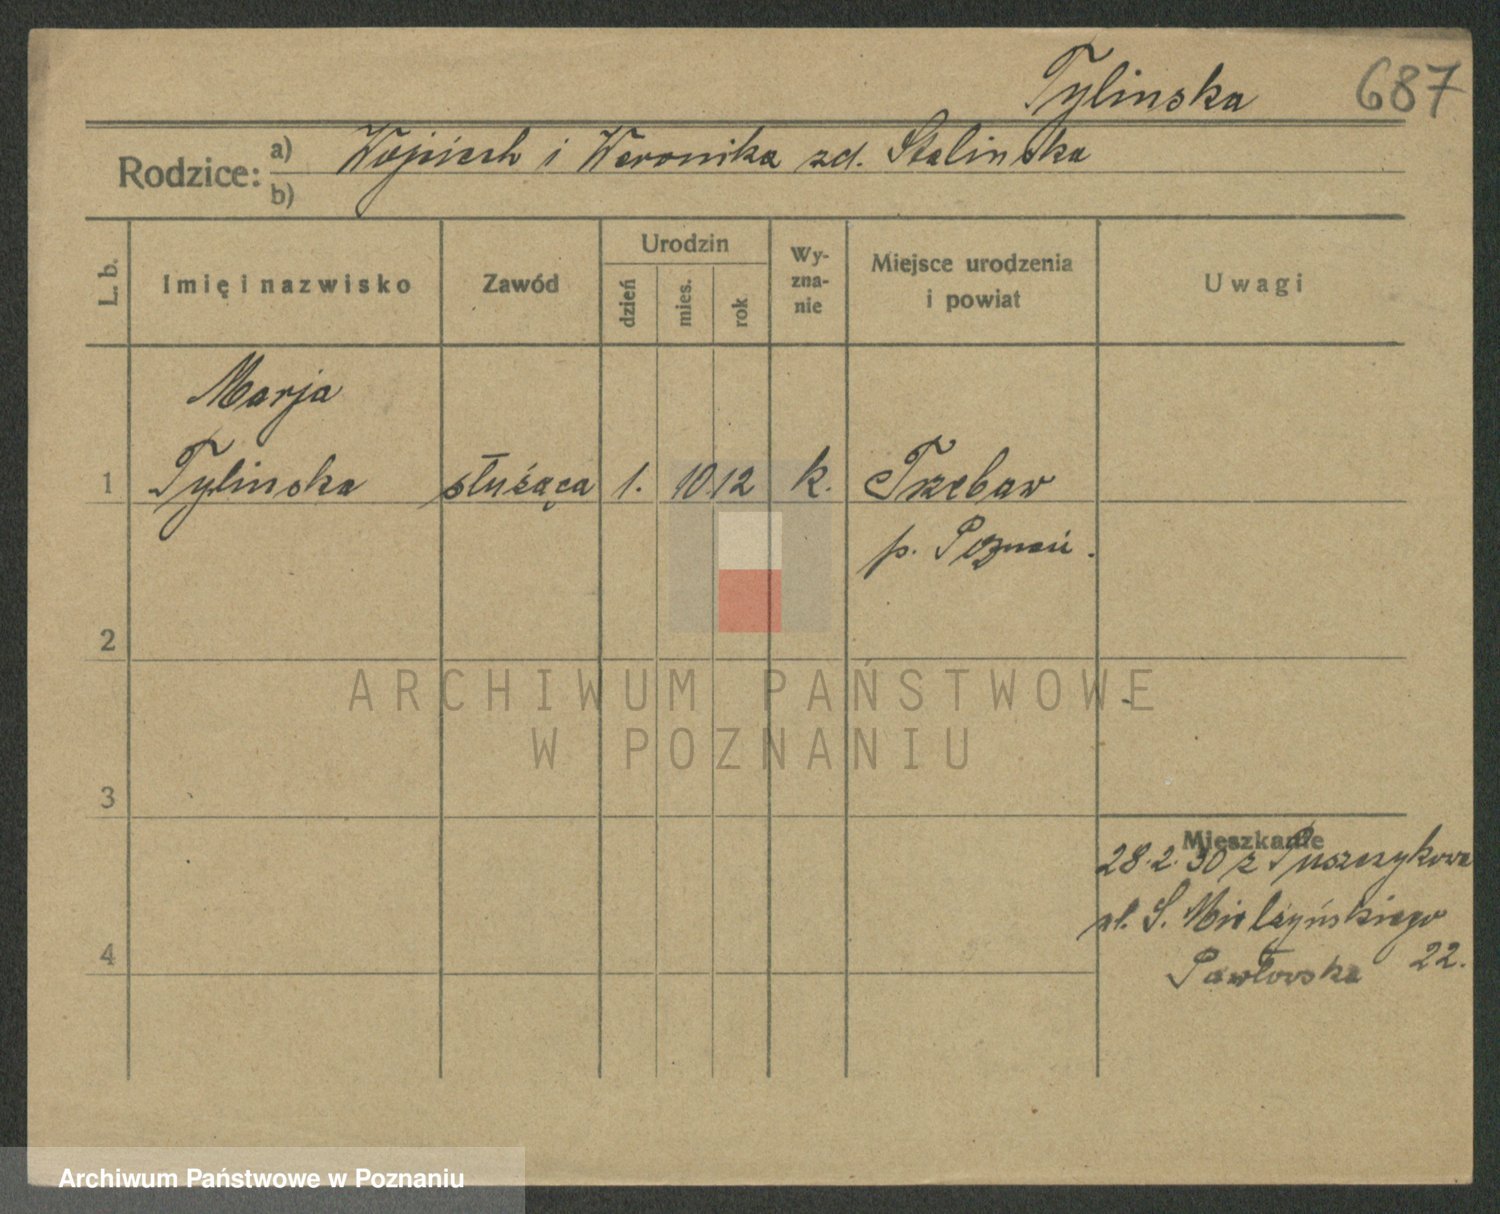 Tylinska 687
Rodzice: a) Wojciech i Weronika zd. Stalinska
b)
L. b. Imię i nazwisko Zawód Urodzin dzień mies. rok Wy-zna-nie Miejsce urodzenia i powiat Uwagi
Marja
1 Tylinska służąca 1. 10 12 k. Trzebaw
p. Poznań.
2
ARCHIWUM PAŃSTWOWE
W POZNANIU
3
Mieszkanie
28.2.30 z Puszczykowa
ul. S. Mielżyńskiego
22.
4 Pawłowska
Archiwum Państwowe w Poznaniu